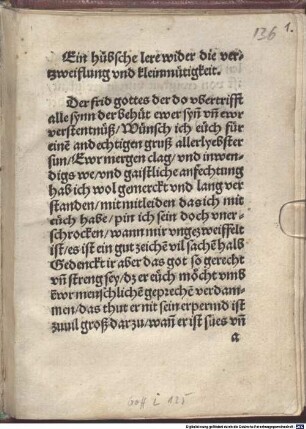 136 1.
Ein hübsche lere wider die ver-
tzweiflung vnd kleinmütigkeit.
Der frid gottes der do vbertrifft
alle synn der behüt ewer syn̄ vn̄ ewr
verstentnüß/ Wünsch ich eüch für
einē andechtigen gruß allerlyebster
sun/ Ewr mergen clag/ vnd inwen-
digs we/ vnd gaistliche anfechtung
hab ich wol gemerckt vnd lang ver
standen/ mit mitleiden das ich mit
eüch habe/ pin ich sein doch vner-
schrocken/ wann mir vngezweiffelt
ist/ es ist ein gut zeichē vil sachē halb
Gedenckt ir aber das got so gerecht
vn̄ streng sey/ dz er eüch möcht vmb
Ewr menschlichē geprechē verdam-
men/ das thut er nit sein erpermd ist
zuuil groß darzu/ wan̄ er ist sues vn̄
a